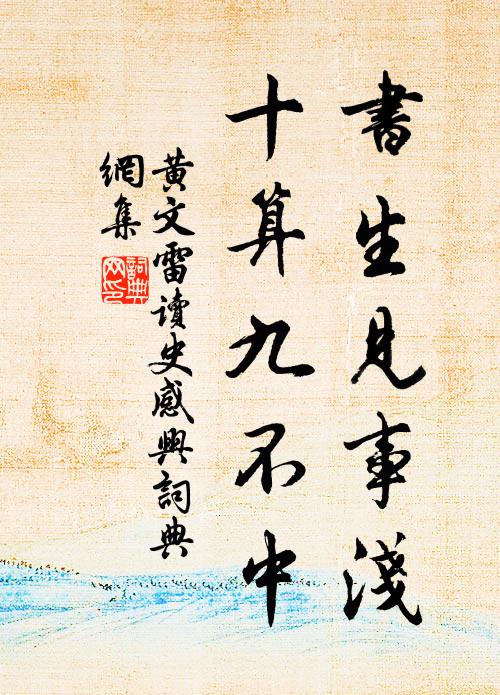 書生見事淺
十算九不中
黃文雷讀史感興詞典
網集
詞典
网印